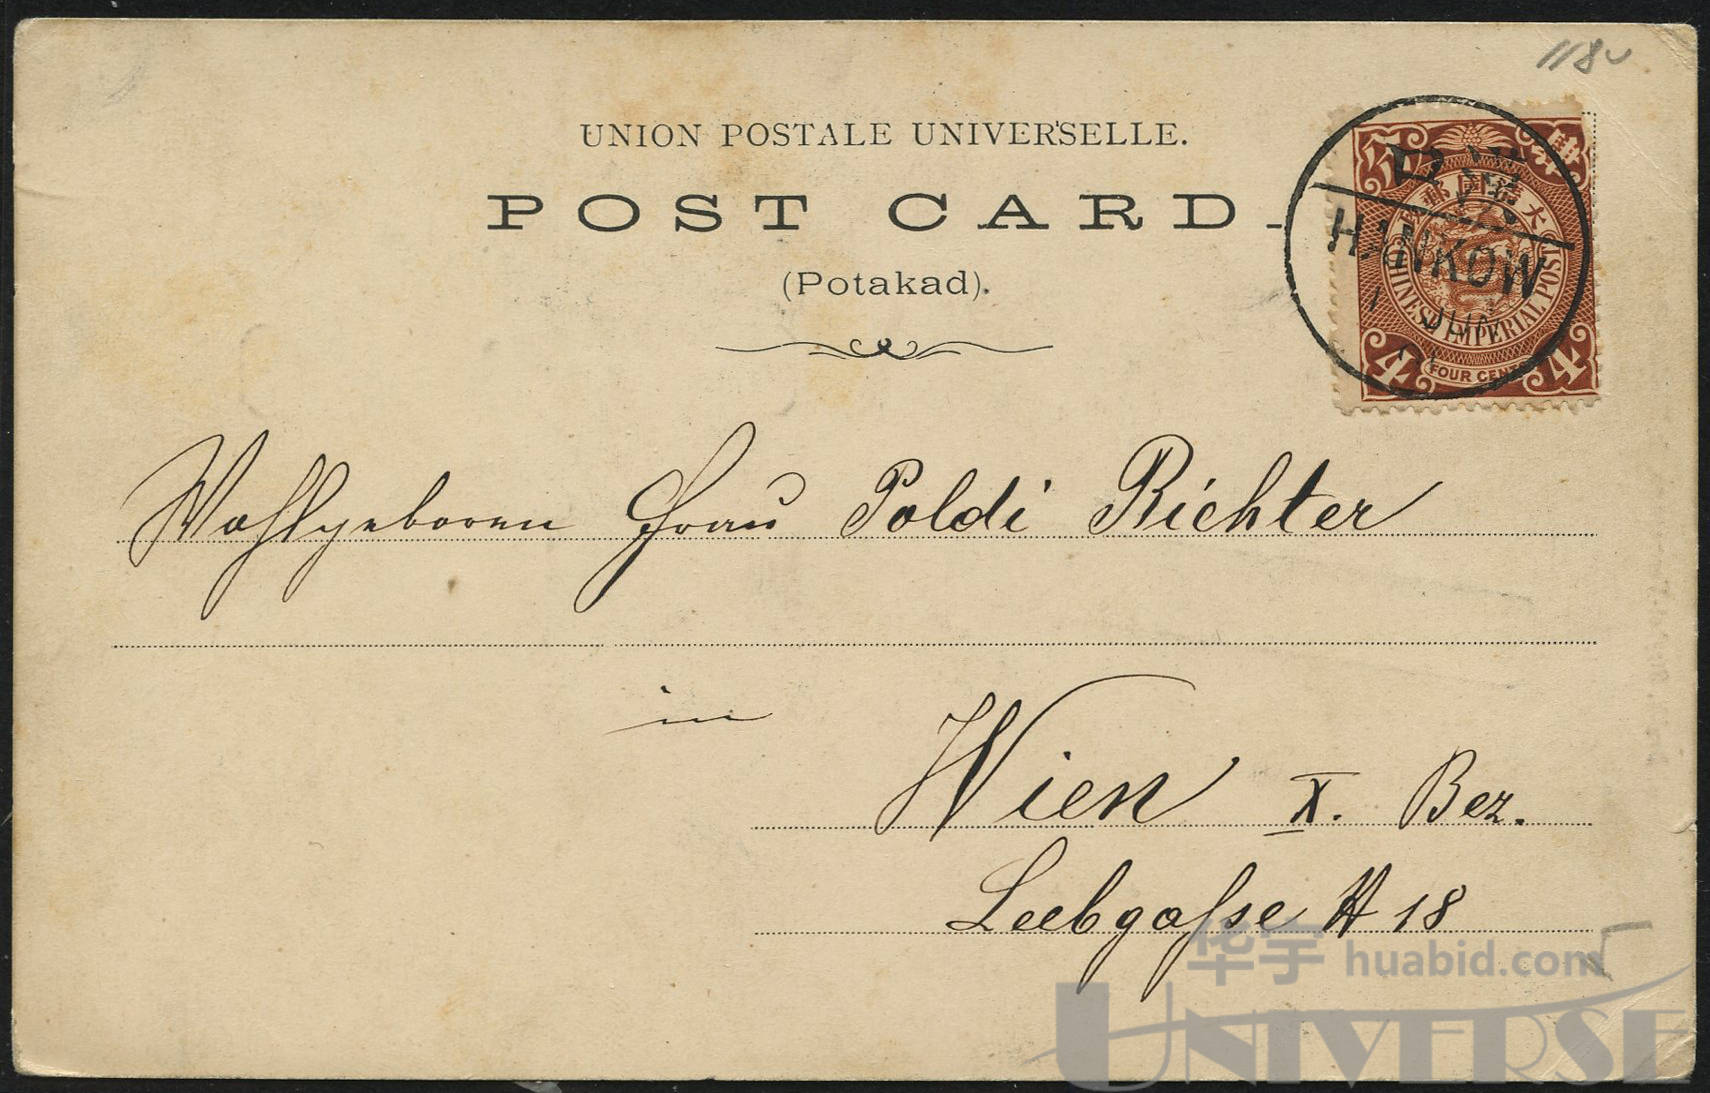 118
UNION POSTALE UNIVERSELLE.
POST CARD.
(Potakad).
大
口漢
HANKOW
CHINESE IMPERIAL POST
4 FOUR CENTS 4
Wohlgeboren Frau Poldi Richter
in
Wien X. Bez.
Leebgasse № 18
华宇 huabid.com
UNIVERSE